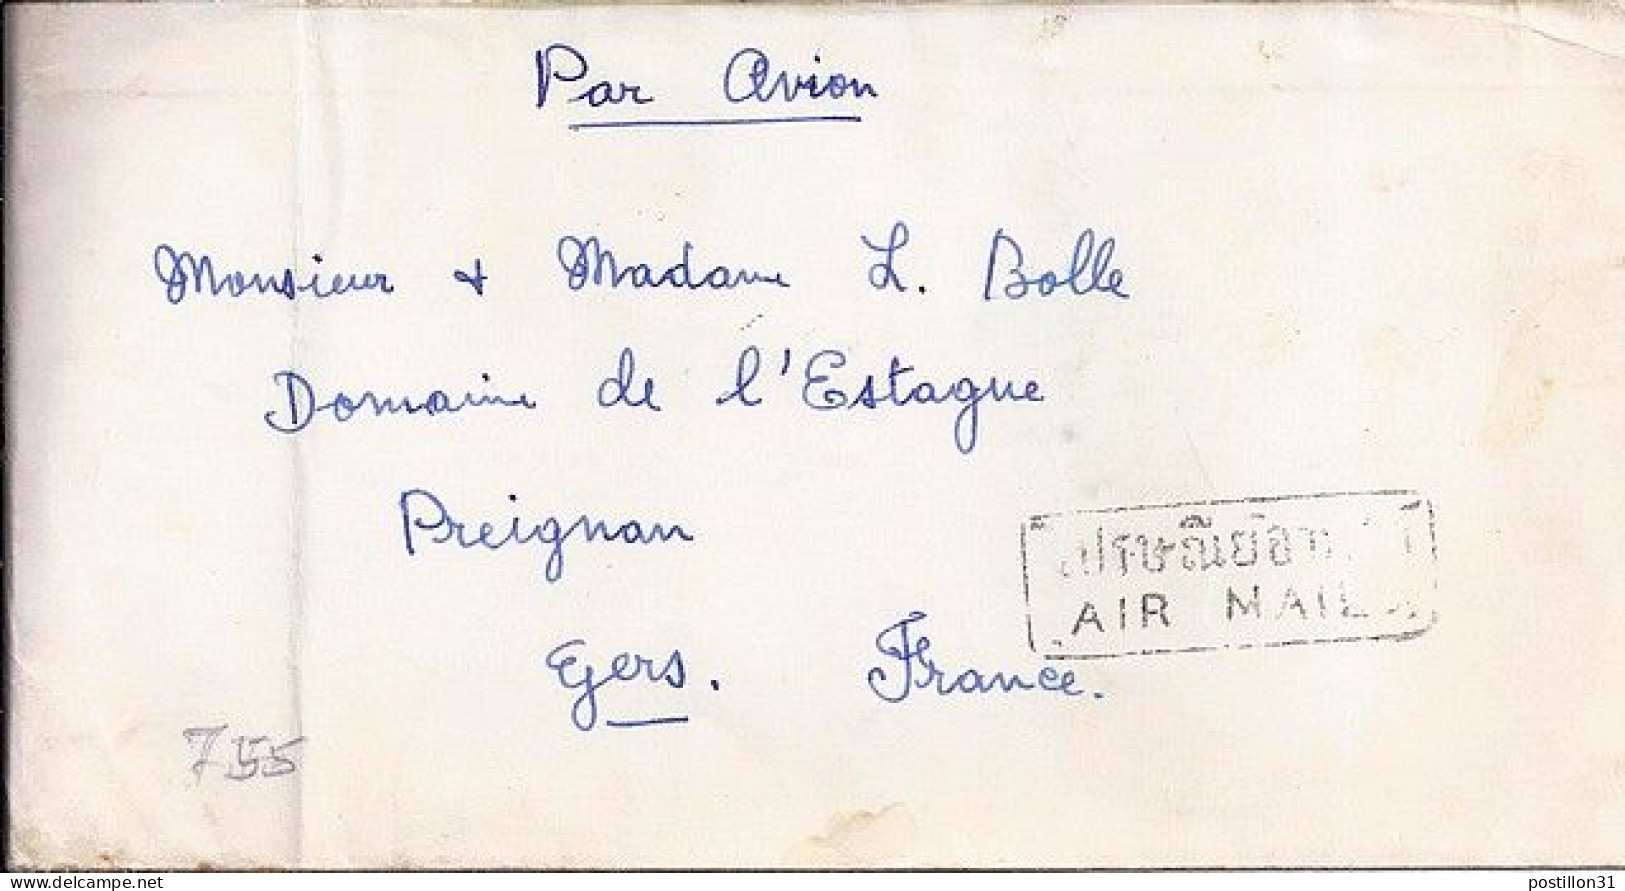 Par Avion
Monsieur & Madame L. Bolle
Domaine de l'Estague
Preignan
ไปรษณีย์อากาศ
AIR MAIL
Gers. France.
755
delcampe.net
postillon31